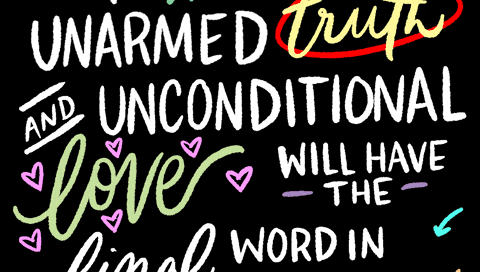 UNARMED truth
AND UNCONDITIONAL
love WILL HAVE
THE
final WORD IN